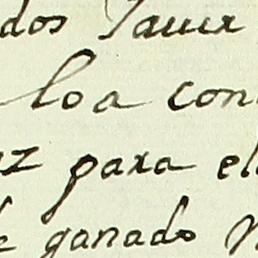 dos Tauer
loa con
z para el
ganado